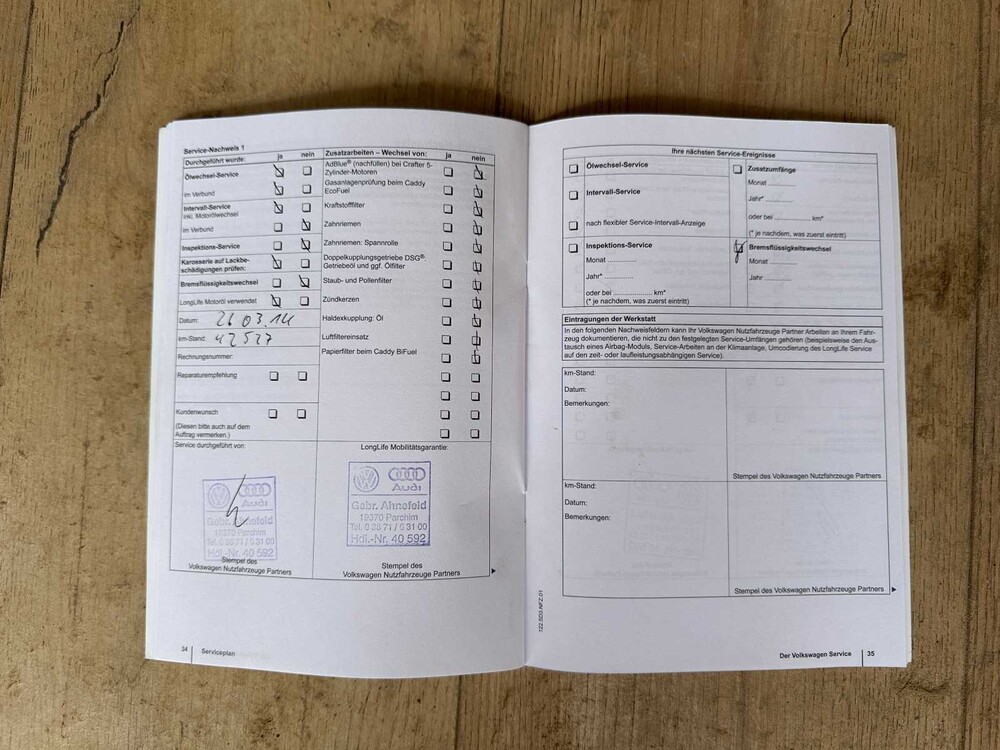 Service-Nachweis 1
Durchgeführt wurde: ja nein
Ölwechsel-Service
im Verbund
Intervall-Service
inkl. Motorölwechsel
im Verbund
Inspektions-Service
Karosserie auf Lackbe-
schädigungen prüfen:
Bremsflüssigkeitswechsel
LongLife Motoröl verwendet
Datum: 26 03.14
km-Stand: 42527
Rechnungsnummer:
Reparaturempfehlung
Kundenwunsch
(Diesen bitte auch auf dem
Auftrag vermerken.)
Service durchgeführt von:
Audi
Gebr. Ahnefeld
19370 Parchim
Tel. 0 38 71 / 6 31 00
Hdl.-Nr. 40 592
Stempel des
Volkswagen Nutzfahrzeuge Partners
Zusatzarbeiten – Wechsel von: ja nein
AdBlue® (nachfüllen) bei Crafter 5-
Zylinder-Motoren
Gasanlagenprüfung beim Caddy
EcoFuel
Kraftstofffilter
Zahnriemen
Zahnriemen: Spannrolle
Doppelkupplungsgetriebe DSG®:
Getriebeöl und ggf. Ölfilter
Staub- und Pollenfilter
Zündkerzen
Haldexkupplung: Öl
Luftfiltereinsatz
Papierfilter beim Caddy BiFuel
LongLife Mobilitätsgarantie:
Audi
Gebr. Ahnefeld
19370 Parchim
Tel. 0 38 71 / 6 31 00
Hdl.-Nr. 40 592
Stempel des
Volkswagen Nutzfahrzeuge Partners
34 Serviceplan
Ihre nächsten Service-Ereignisse
Ölwechsel-Service
Intervall-Service
nach flexibler Service-Intervall-Anzeige
Inspektions-Service
Monat ..........
Jahr* ..........
oder bei .................... km*
(* je nachdem, was zuerst eintritt)
Zusatzumfänge
Monat ..........
Jahr* ..........
oder bei .................... km*
(* je nachdem, was zuerst eintritt)
Bremsflüssigkeitswechsel
Monat ..........
Jahr ..........
Eintragungen der Werkstatt
In den folgenden Nachweisfeldern kann Ihr Volkswagen Nutzfahrzeuge Partner Arbeiten an Ihrem Fahr-
zeug dokumentieren, die nicht zu den festgelegten Service-Umfängen gehören (beispielsweise den Aus-
tausch eines Airbag-Moduls, Service-Arbeiten an der Klimaanlage, Umcodierung des LongLife Service
auf den zeit- oder laufleistungsabhängigen Service).
km-Stand:
Datum:
Bemerkungen:
Stempel des Volkswagen Nutzfahrzeuge Partners
km-Stand:
Datum:
Bemerkungen:
Stempel des Volkswagen Nutzfahrzeuge Partners
122.5D3.NFZ.01
Der Volkswagen Service 35